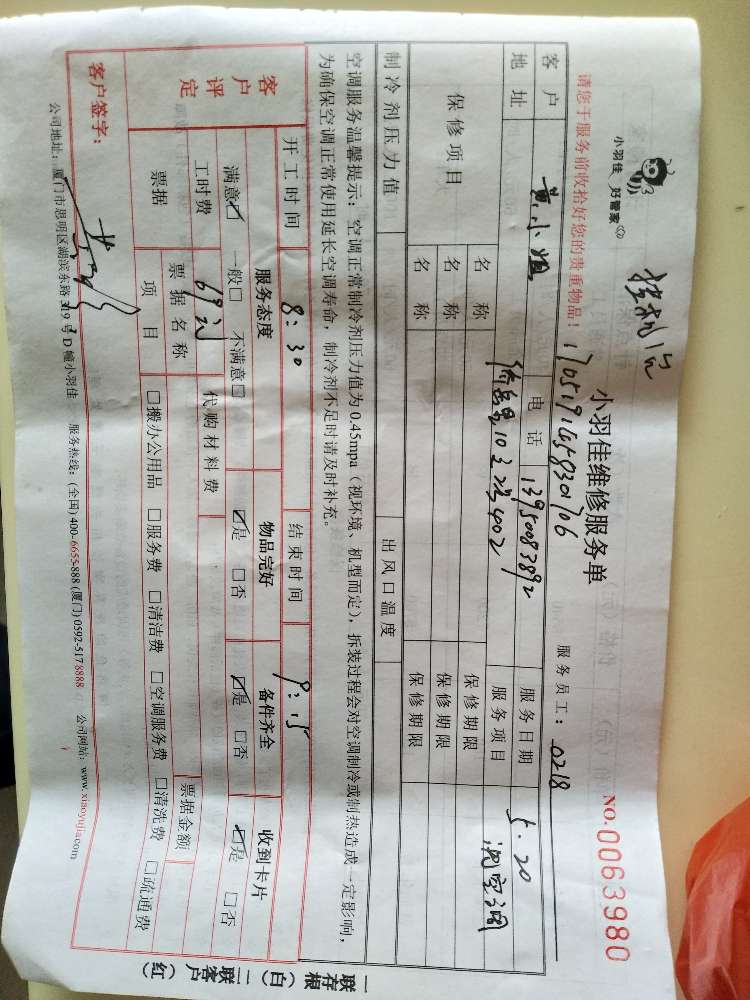 小羽佳 好管家
挂机洗
小羽佳维修服务单
NO.0063980
请您于服务前收拾好您的贵重物品!
服务员工: 0218
客户 黄小姐 电话 13950083892 服务日期 5.20
地址 10 402 服务项目 洗空调
保修项目 名称 保修期限
名称 保修期限
名称 保修期限
制冷剂压力值 出风口温度
空调服务温馨提示: 空调正常制冷剂压力值为0.45mpa(视环境、机型而定),拆装过程会对空调制冷或制热造成一定影响,
为确保空调正常使用延长空调寿命,制冷剂不足时请及时补充。
开工时间 8:30 结束时间 9:15
客户评定 服务态度 物品完好 备件齐全 收到卡片
满意☑ 一般□ 不满意□ ☑是 □否 ☑是 □否 ☑是 □否
工时费 69元 代购材料费
票据 票据名称 票据金额
项目 □搬办公用品 □服务费 □清洁费 □空调服务费 □清洗费 □疏通费
客户签字:
公司地址: 厦门市思明区湖滨东路319号D幢小羽佳 服务热线: (全国)400-6655-888 (厦门)0592-5178888 公司网站: www.xiaoyujia.com
一联存根(白) 二联客户(红)